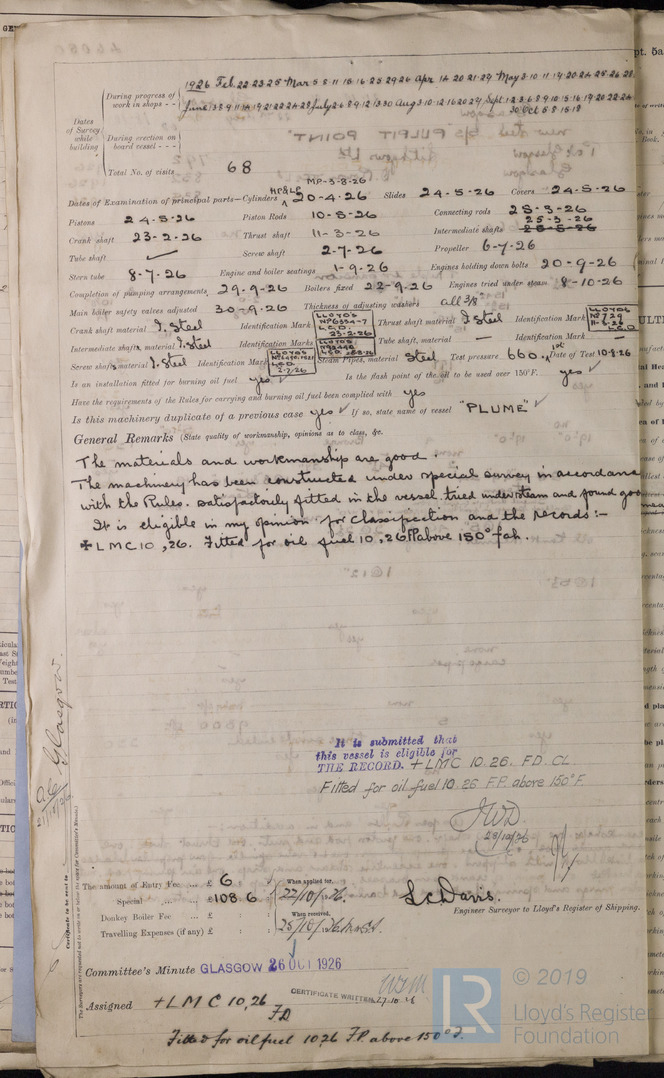 1926 Feb. 22 23 25 Mar 5 8 11 15 16 25 29 26 Apr 14 20 21 27 May 3 10 11 17 20 24 25 26 28
During progress of work in shops - -
June 3 8 9 11 14 19 21 22 24 28 July 2 6 8 9 12 13 30 Aug 3 10 12 16 20 27 Sept 1 2 3 6 8 9 10 15 16 19 20 22 24
30 Oct 5 8 15 18
Dates of Survey while building
During erection on board vessel - - -
Total No. of visits
68
Dates of Examination of principal parts—Cylinders HP&LP 20-4-26 MP-3-8-26 Slides 24-5-26 Covers 24-5-26
Pistons 24-5-26 Piston Rods 10-5-26 Connecting rods 25-3-26
Crank shaft 23-2-26 Thrust shaft 11-3-26 Intermediate shafts 25-3-26
Tube shaft ✓ Screw shaft 2-7-26 Propeller 6-7-26
Stern tube 8-7-26 Engine and boiler seatings 1-9-26 Engines holding down bolts 20-9-26
Completion of pumping arrangements 29-9-26 Boilers fixed 22-9-26 Engines tried under steam 8-10-26
Main boiler safety valves adjusted 30-9-26 Thickness of adjusting washers all 3/8
Crank shaft material I. Steel Identification Mark LLOYD'S L.C.D. 23-2-26 Thrust shaft material I. Steel Identification Mark LLOYD'S L.C.D
Intermediate shafts, material I. Steel Identification Marks LLOYD'S Tube shaft, material — Identification Mark —
Screw shaft, material I. Steel Identification Mark LLOYD'S L.C.D. 2-7-26 Steam Pipes, material Steel Test pressure 660. Date of 1st Test 10-8-26
Is an installation fitted for burning oil fuel yes ✓ Is the flash point of the oil to be used over 150°F. yes ✓
Have the requirements of the Rules for carrying and burning oil fuel been complied with yes
Is this machinery duplicate of a previous case yes ✓ If so, state name of vessel "PLUME" ✓
General Remarks (State quality of workmanship, opinions as to class, &c.
The materials and workmanship are good.
The machinery has been constructed under special survey in accordance
with the Rules. satisfactorily fitted in the vessel tried under steam and found good
It is eligible in my opinion for classification and the records:-
✠ LMC 10,26. Fitted for oil fuel 10,26 FP above 150° fah.
It is submitted that
this vessel is eligible for
THE RECORD. + LMC 10.26. FD. CL.
Fitted for oil fuel 10.26 F.P. above 150°F.
JWD
28/10/26
Glasgow.
Certificate to be sent to
The Surveyors are requested not to write on or below the space for Committee's Minute.
The amount of Entry Fee ... £ 6 : When applied for, 22/10/26.
Special ... £ 108.6
Donkey Boiler Fee ... £ : : When received,
Travelling Expenses (if any) £ : : 25/10/26
L.C. Davis.
Engineer Surveyor to Lloyd's Register of Shipping.
Committee's Minute GLASGOW 26 OCT 1926
CERTIFICATE WRITTEN 27.10.26
Assigned + LMC 10,26
FD
Fitted for oil fuel 10,26 F.P. above 150°F.
LR © 2019
Lloyd's Register
Foundation